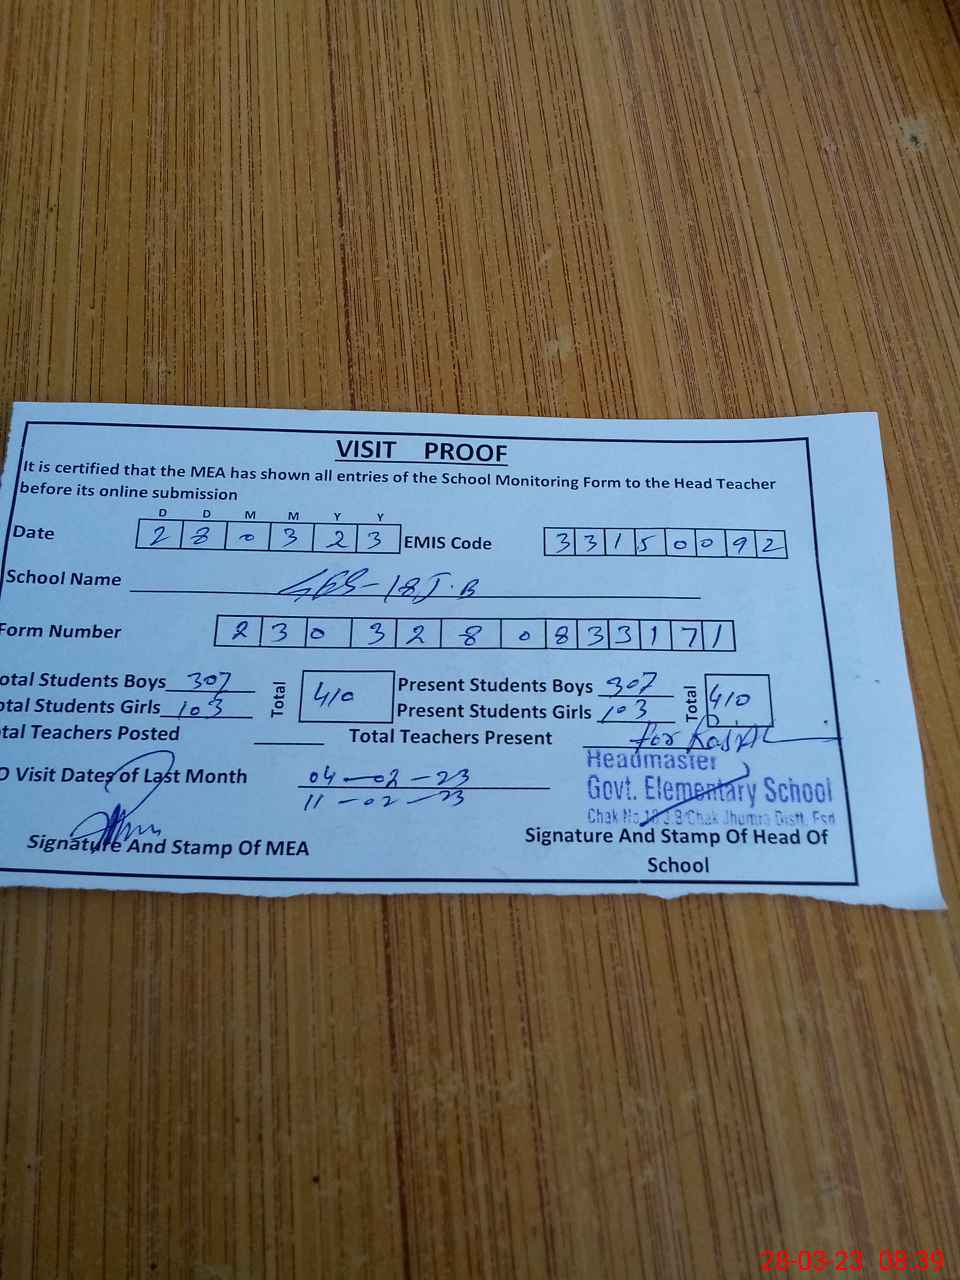 VISIT PROOF
It is certified that the MEA has shown all entries of the School Monitoring Form to the Head Teacher
before its online submission
D D M M Y Y
Date 2 8 0 3 2 3 EMIS Code 3 3 1 5 0 0 9 2
School Name GES-18J.B
Form Number 2 3 0 3 2 8 0 8 3 3 1 7 1
otal Students Boys 307 Total 410 Present Students Boys 307 Total 410
otal Students Girls 103 Present Students Girls 103
tal Teachers Posted Total Teachers Present
for
O Visit Dates of Last Month 04-02-23
11-02-23
Headmaster
Govt. Elementary School
Chak No 18 J.B Chak Jhumra Distt. Fsd
Signature And Stamp Of MEA
Signature And Stamp Of Head Of
School
28-03-23 08:39